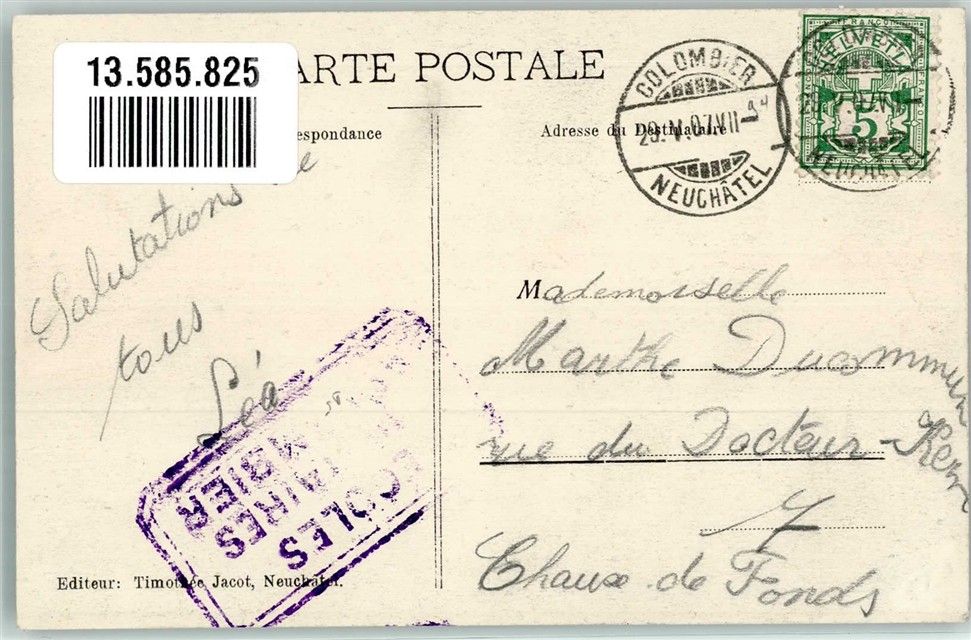 13.585.825
ARTE POSTALE
espondance
Adresse du Destinataire
COLOMBIER
29.V.07.VII
NEUCHÂTEL
FRANCO
HELVETIA
5
Salutations de
tous
Léa
Mademoiselle
Marthe Ducommun
rue du Docteur-Kern
7
Chaux de Fonds
ECOLES
BIER
Editeur: Timothée Jacot, Neuchâtel.